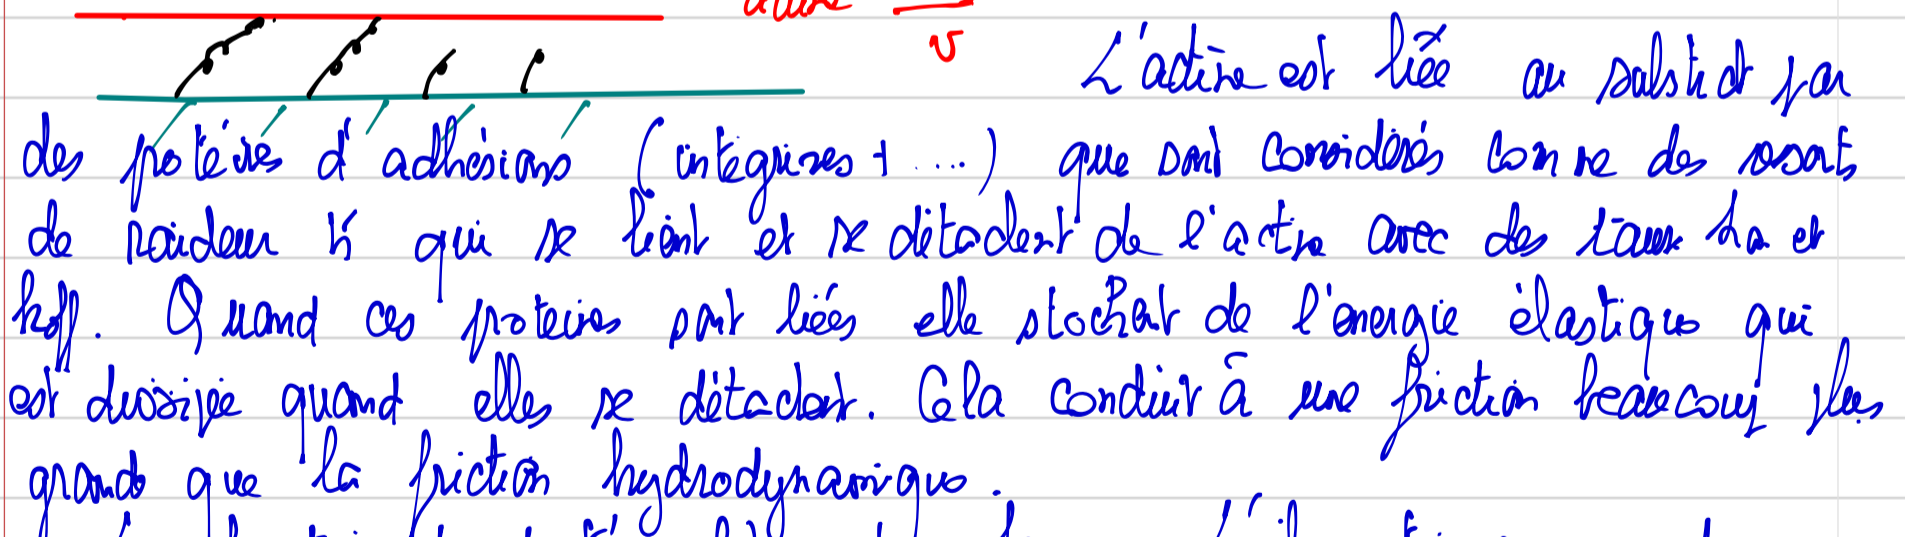 actine
v
L'actine est liée au substrat par
des protéines d'adhésions (intégrines + ...) que sont considérés comme des ressorts
de raideur k qui se lient et se détachent de l'actine avec des taux kon et
koff. Quand ces protéines sont liées elle stockent de l'énergie élastique qui
est dissipée quand elles se détachent. Cela conduit à une friction beaucoup plus
grande que la friction hydrodynamique.